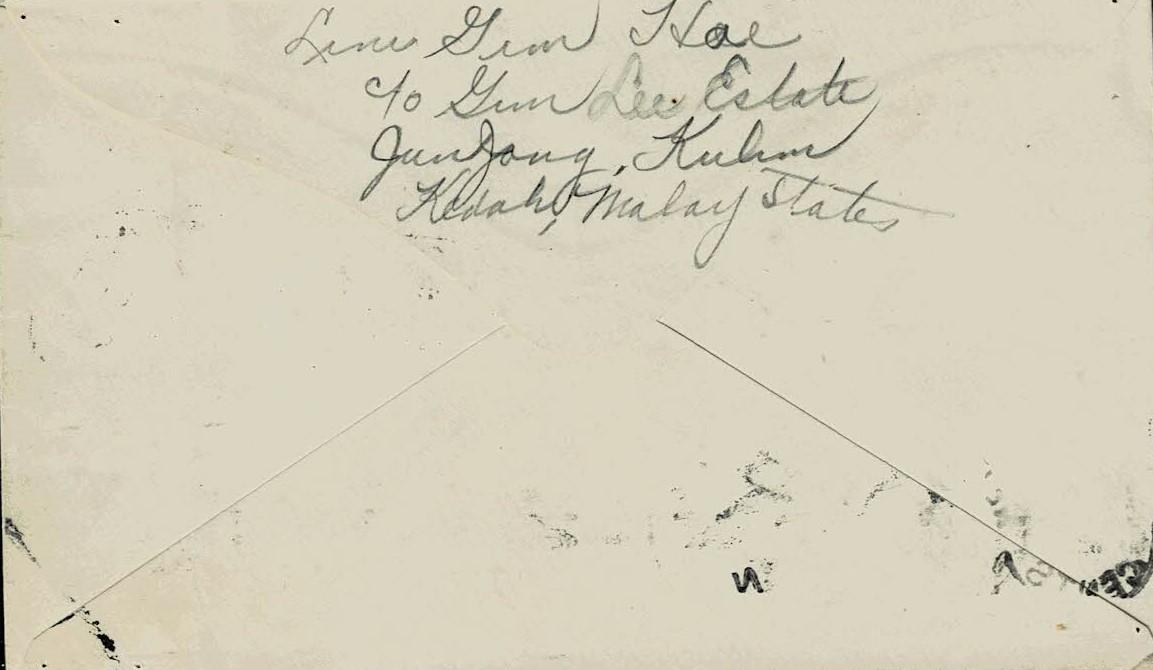 Lim Gim Hoe
c/o Gim Lee Estate
Junjong, Kulim
Kedah, Malay States
N